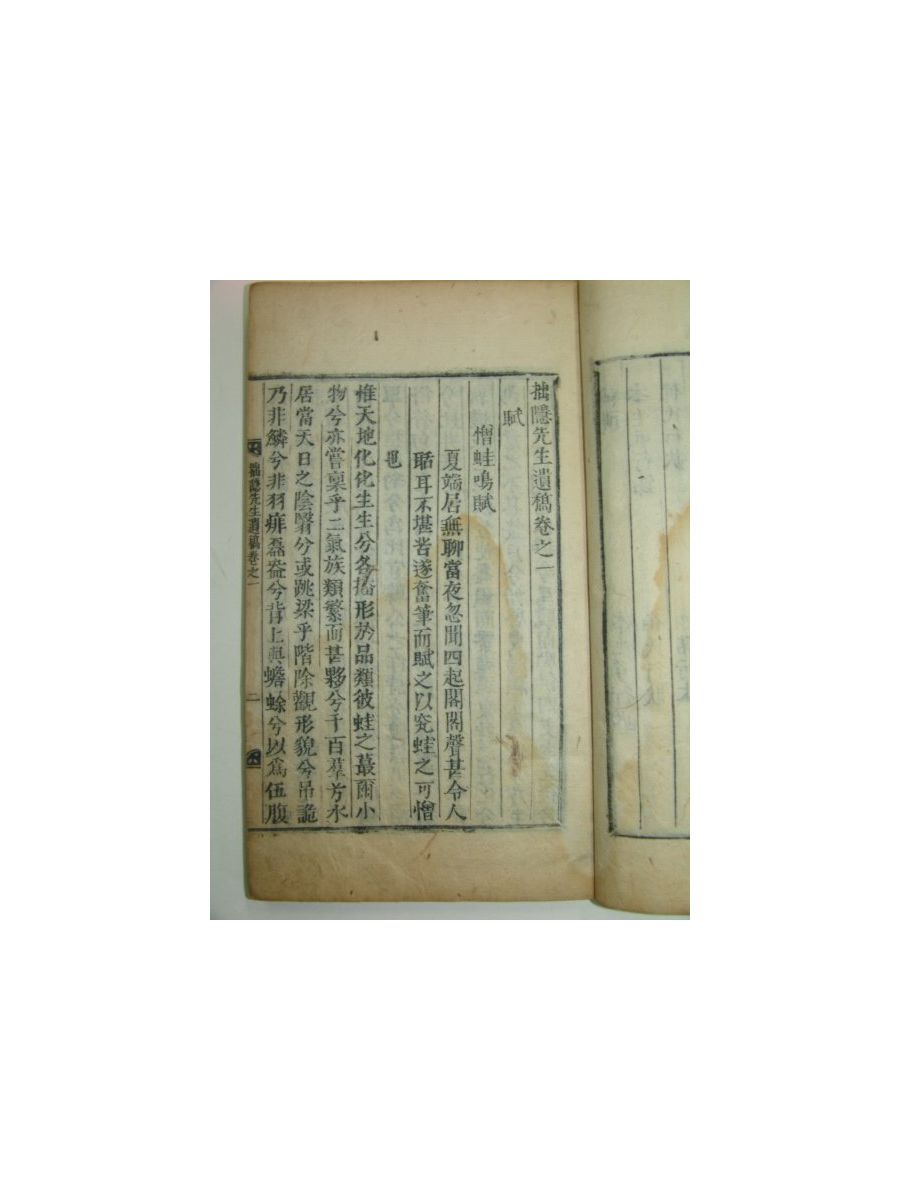 拙隱先生遺稿卷之一
賦
憎蛙鳴賦
夏端居無聊當夜忽聞四起閣閣聲甚令人
聒耳不堪苦遂奮筆而賦之以究蛙之可憎
也
惟天地化化生生兮各播形於品類彼蛙之蕞爾小
物兮亦嘗稟乎二氣族類繁而甚夥兮千百羣
居當天日之陰翳兮或跳梁乎階除觀形貌兮吊詭
乃非鱗兮非羽痱磊兮背上與蟾蜍兮以爲伍腹
拙隱先生遺稿卷之一